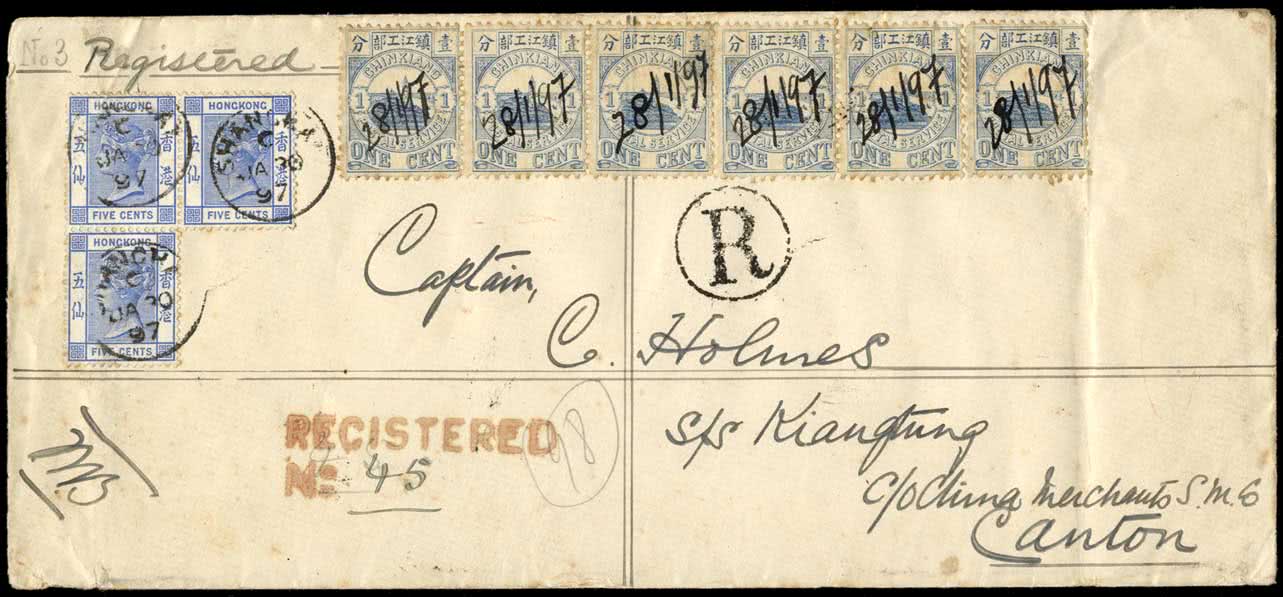 No 3 Registered
鎮江工部
分 壹
CHINKIANG
1 1
28/1/97
POSTAL SERVICE
ONE CENT
鎮江工部
分 壹
CHINKIANG
1 1
28/1/97
POSTAL SERVICE
ONE CENT
鎮江工部
分 壹
CHINKIANG
1 1
28/1/97
POSTAL SERVICE
ONE CENT
鎮江工部
分 壹
CHINKIANG
1 1
28/1/97
POSTAL SERVICE
ONE CENT
鎮江工部
分 壹
CHINKIANG
1 1
28/1/97
POSTAL SERVICE
ONE CENT
鎮江工部
分 壹
CHINKIANG
1 1
28/1/97
POSTAL SERVICE
ONE CENT
HONGKONG
五仙
香港
FIVE CENTS
C
JA 30
97
HONGKONG
五仙
香港
FIVE CENTS
SHANGHAI
C
JA 30
97
HONGKONG
五仙
香港
FIVE CENTS
SHANGHAI
C
JA 30
97
R
Captain,
C. Holmes
REGISTERED
No 45
98
S/S Kiangtung
c/o China Merchants S. N. Co
Canton